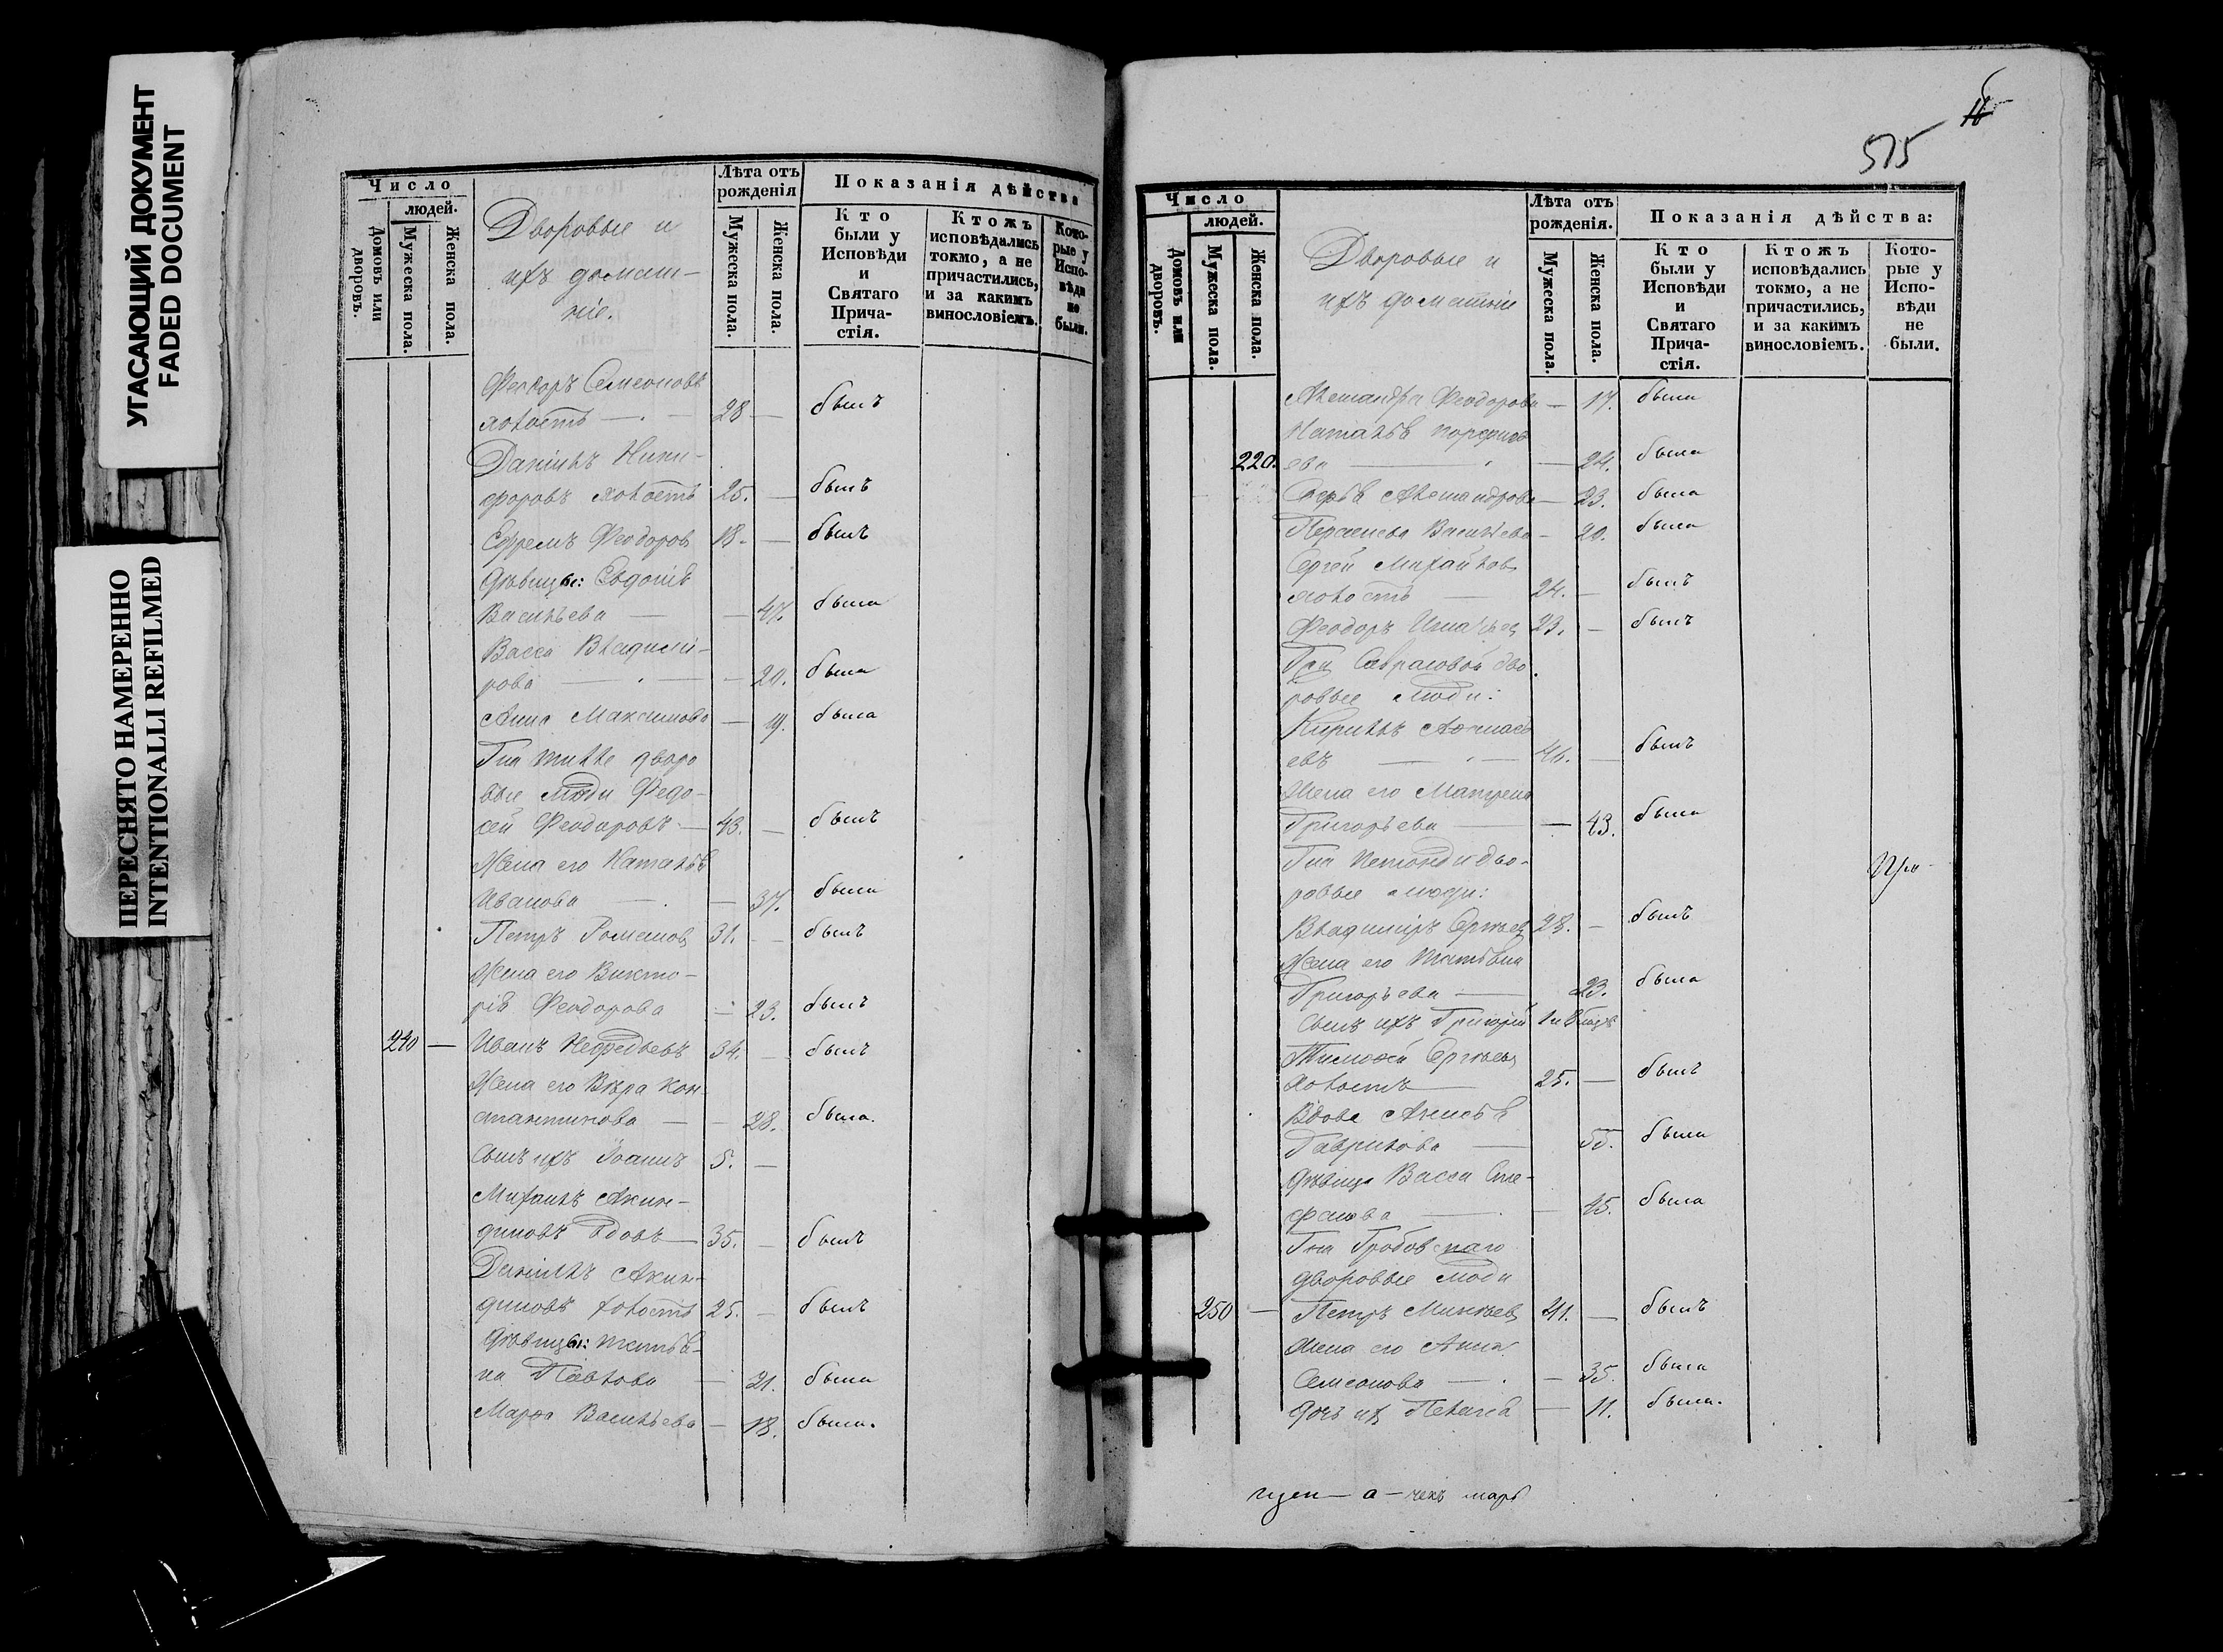 УГАСАЮЩИЙ ДОКУМЕНТ
FADED DOCUMENT
ПЕРЕСНЯТО НАМЕРЕННО
INTENTIONALLI REFILMED
Число
людей.
Домовъ или дворовъ.
Мужеска пола.
Женска пола.
Дворовые и
ихъ домаш-
ніе.
Лѣта отъ
рожденія
Мужеска пола.
Женска пола.
Показанія дѣйства
Кто
были у
Исповѣди
и
Святаго
Прича-
стія.
Ктожъ
исповѣдались
токмо, а не
причастились,
и за какимъ
винословіемъ.
Кото-
рые у
Испо-
вѣди
не
были.
Феодоръ Семеоновъ
холостъ — 28 — былъ
Даніилъ Ники-
форовъ холостъ 25. — былъ
Ефремъ Феодоровъ 18. — былъ
Дѣвицы: Евдокія
Васильева — — 47. была
Васса Владимі-
рова — — 20. была
Анна Максимова — 19. была
Гна дворо
вые люди Федо-
сей Феодоровъ — 43. — былъ
Жена его Наталья
Иванова — — 37. была
Петръ Романовъ 31. — былъ
Жена его Викто-
рія Феодорова — 23. былъ
240 — Иванъ Нефедьевъ 34. — былъ
Жена его Вѣра Кон-
стантинова — — 28. была.
Сынъ ихъ Іоаннъ 5. —
Михаилъ Акин-
диновъ вдовъ — 35. — былъ
Даніилъ Акин-
диновъ холостъ 25. — былъ
Дѣвицы: Татья-
на Павлова — 21. была
Марѳа Васильева — 18. была.
515
Число
людей.
Домовъ или дворовъ.
Мужеска пола.
Женска пола.
Дворовые и
ихъ домашніе
Лѣта отъ
рожденія.
Мужеска пола.
Женска пола.
Показанія дѣйства:
Кто
были у
Исповѣди
и
Святаго
Прича-
стія.
Ктожъ
исповѣдались
токмо, а не
причастились,
и за какимъ
винословіемъ.
Кото-
рые у
Испо-
вѣди
не
были.
Александра Феодорова — 17. была
Наталья Порфирь
220. ева — — 24. была
Софья Александрова — 23. была
Васильева — 20. была
Сергей Михайловъ
холостъ — 24. — былъ
Феодоръ Игнатьевъ 23. — былъ
Гжи Саврасовой дво
ровые люди:
Кириллъ Аѳанась
евъ — 46. — былъ
Жена его Матрена
Григорьева — — 43. была
Гна дво-
ровые люди:
Владиміръ Сергѣевъ 28. — былъ
Жена его Татьяна
Григорьева — 23. была
Сынъ ихъ Григорій
Тимоѳей Сергѣевъ
холостъ — 25. — былъ
Вдова Анисья
Гаврилова — 55. была
Дѣвица Васса Сте-
фанова — — 45. была
Гна Гробовскаго
дворовые люди
250 — Петръ Михѣевъ 41. — былъ
Жена его Анна
Семеонова — — 35. была
Дочь ихъ Пелагея — 11. была.